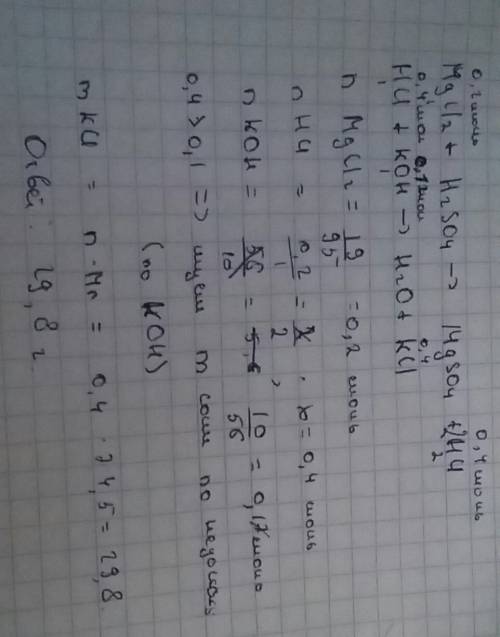 0,2 моль 0,4 моль
MgCl2 + H2SO4 -> MgSO4 + 2HCl
0,4 моль 0,1 моль 0,4
HCl + KOH -> H2O + KCl
n MgCl2 = 19/95 = 0,2 моль
n HCl = 0,2/1 = x/2 . x = 0,4 моль
n KOH = 56/10 = 5,6, 10/56 = 0,17 моль
0,4 > 0,1 => ищем m соли по недостатку
(по KOH)
m KCl = n · Mr = 0,4 · 74,5 = 29,8
Ответ: 29,8 г.